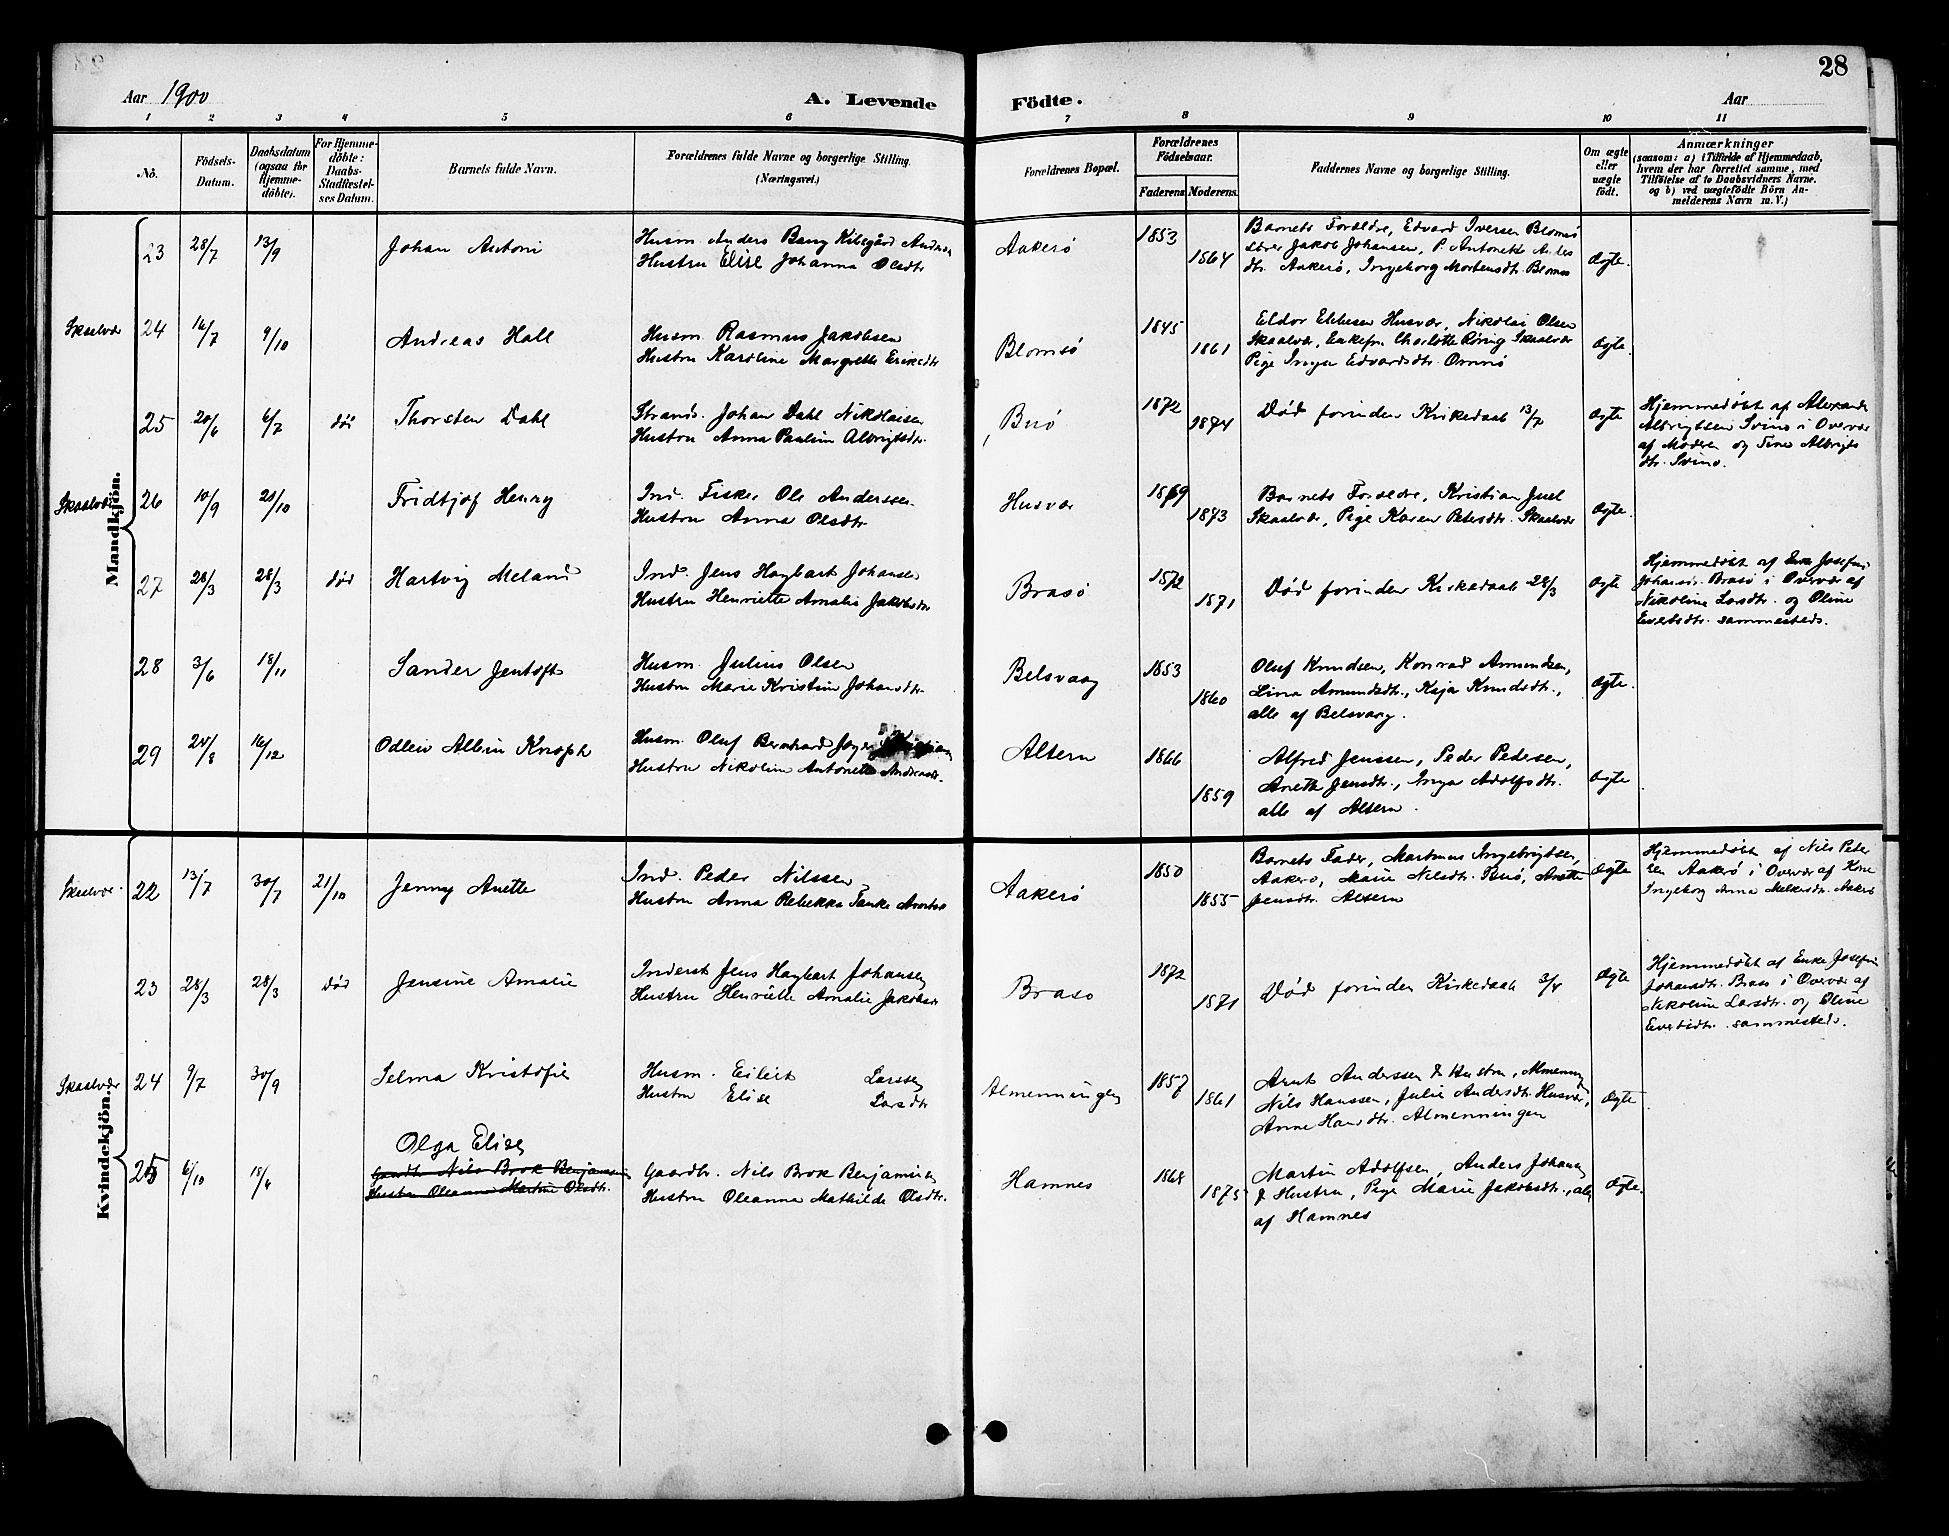 28
Aar 1900
A. Levende Födte.
Aar
1 2 3 4 5 6 7 8 9 10 11
No.
Födsels-Datum.
Daabsdatum (ogsaa for Hjemme-döbte).
For Hjemme-döbte: Daabs-Stadfæstel-ses Datum.
Barnets fulde Navn.
Forældrenes fulde Navne og borgerlige Stilling.
(Næringsvei.)
Forældrenes Bopæl.
Forældrenes Födselsaar.
Faderens. Moderens.
Faddernes Navne og borgerlige Stilling.
Om ægte eller uægte födt.
Anmærkninger
(saasom: a) i Tilfælde af Hjemmedaab,
hvem der har forrettet samme, med
Tilföielse af to Daabsvidners Navne,
og b) ved uægtefödte Börn An-
melderens Navn m. V.)
Mandkjön.
23 28/7 13/9 Johan Antoni
Husm. Anders Bang Kibsgård
Hustru Elise Johanna Olsdtr
Aakerø 1853 1864
Barnets Forældre, Edvard Iversen Blomsø
Jakob Johansen, P. Antonette
dtr. Aakerø, Ingeborg Mortensdtr. Blomsø
Ægte.
Skaalvær 24 16/7 9/10 Andreas Hall
Husm. Rasmus Jakobsen
Hustru Karoline Margrethe Eriksdtr
Blomsø 1845 1861
Eldor Ebbesen Husvær, Nikolai Olsen
Skaalvær, Enkefru Charlotte Rönig Skaalvær
Pige Inga Edvardsdtr. Ømnø
Ægte.
25 20/6 6/7 död Thorsten Dahl
Strands. Johan Dahl Nikolaisen
Hustru Anna Pauline Albrigtsdtr.
Buø 1872 1874
Død forinden Kirkedaab 13/7
Ægte
Hjemmedøbt af
Albrigtsen Svinø i Overvær
af Moderen og Tine Albrigts
dtr. Svinø.
Skaalvær 26 10/9 21/10 Fridtjof Henry
Ind. Fisker Ole Anderssen
Hustru Anna Olsdtr
Husvær 1869 1873
Barnets Forældre, Kristian Juel
Skaalvær, Pige Karen Petersdtr. Skaalvær
Ægte.
27 28/3 28/3 død Hartvig Meland
Ind. Jens Hagbart Johansen
Hustru Henriette Amalie Jakobsdtr
Brasø 1872 1871
Død forinden Kirkedaab 28/3
Ægte
Hjemmedøbt af Enke Josefine
Johansdr. Brasø i Overvær af
Nikoline Larsdtr. og Oline
Evertsdtr. sammesteds.
28 3/6 18/11 Sander Jentoft
Husm. Julius Olsen
Hustru Marie Kristine Johansdtr.
Belsvaag 1853 1860
Oluf Knudsen, Konrad Amundsen,
Lina Amundsdtr., Kaja Knudsdtr.,
alle af Belsvaag.
Ægte.
29 20/8 16/12 Odleiv Albin Knoph
Husm. Oluf Bernhard
Hustru Nikoline Antonette Andreasdtr.
Altern 1866 1859
Alfred Jenssen, Peder Pedersen,
Anette Jensdtr., Inga Adolfsdtr.
alle af Altern.
Ægte
Kvindekjön.
Skaalvær 22 13/7 30/7 21/10 Jenny Anette
Ind. Peder Nilssen
Hustru Anna Rebekka Tanke
Aakerø 1850 1855
Barnets Fader, Martinus Ingebrigtsen,
Aakerø, Marie Nilsdtr. Buø, Anette
Jensdtr. Altern
Ægte
Hjemmedøbt af Nils Peter
sen Aakerø i Overvær af Kone
Ingeborg Anna Melkersdtr. Aakerø
23 28/3 28/3 Død Jensine Amalie
Inderst Jens Hagbart Johansen
Hustru Henriette Amalie Jakobsdr
Brasø 1872 1871
Død forinden Kirkedaab 3/4
Ægte
Hjemmedøbt af Enke Josefine
Johansdtr. Brasø i Overvær af
Nikoline Larsdtr. og Oline
Evertsdtr. sammesteds.
Skaalvær 24 9/7 30/9 Selma Kristofie
Husm. Eilert Larssen
Hustru Elise Larsdtr
Almenningen 1857 1861
Arnt Anderssen & Hustru, Almenning
Nils Hanssen, Julie Andersdtr. Husvær,
Anne Hansdtr. Almenningen
Ægte
25 6/10 18/6 Olga Elise
Gaardbr. Nils Brok Benjaminsen
Hustru Oleanna Martine Olsdtr.
Gaardbr. Nils Brok Benjaminsen
Hustru Oleanna Mathilde Olsdtr.
Hamnes 1868 1875
Martin Adolfsen, Anders Johansen
& Hustru, Pige Marie Jakobsdtr., alle
af Hamnes
Ægte.